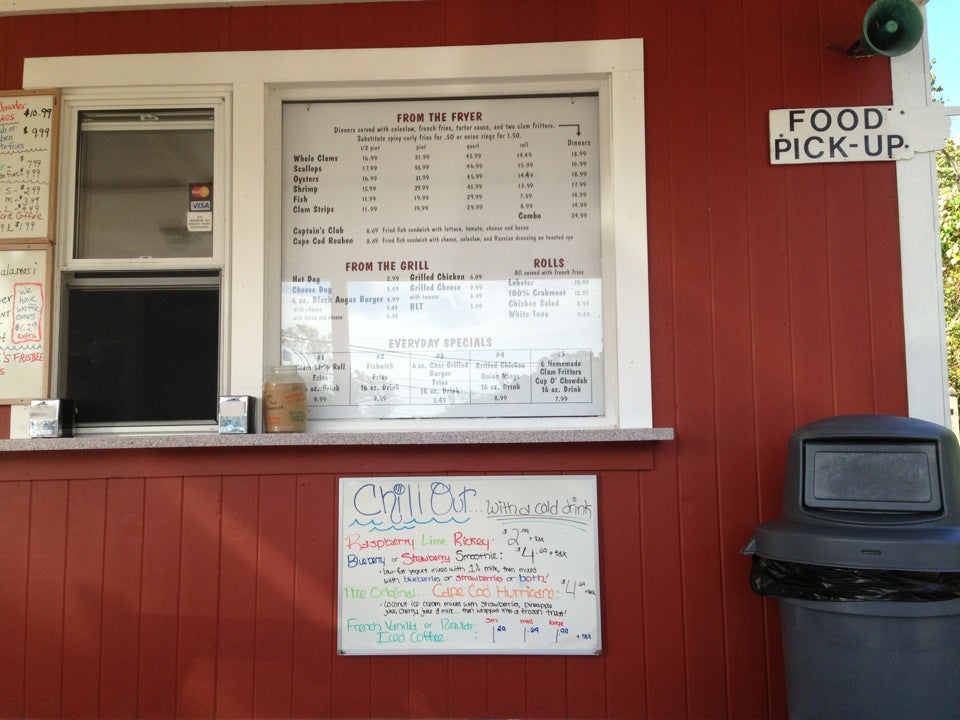 $10.99
$9.99
Iced Coffee
we
have
waffle
cones
$1.29
extra
'S FRISBEE
MasterCard
VISA
FROM THE FRYER
Dinners served with coleslaw, french fries, tartar sauce, and two clam fritters.
Substitute spicy curly fries for .50 or onion rings for 1.50.
1/2 pint pint quart roll Dinners
Whole Clams 16.99 31.99 45.99 14.49 18.99
Scallops 17.99 33.99 46.99 15.99 19.99
Oysters 16.99 31.99 45.99 14.49 18.99
Shrimp 15.99 29.99 41.99 13.99 17.99
Fish 11.99 19.99 29.99 7.99 14.99
Clam Strips 11.99 19.99 29.99 8.99 14.99
Combo 24.99
Captain's Club 8.69 Fried fish sandwich with lettuce, tomato, cheese and bacon
Cape Cod Reuben 8.69 Fried fish sandwich with cheese, coleslaw, and Russian dressing on toasted rye
FROM THE GRILL
Hot Dog 2.99
Cheese Dog 3.49
6 oz. Black Angus Burger 4.99
with cheese 5.49
with bacon and cheese 6.49
Grilled Chicken 6.99
Grilled Cheese 2.99
with tomato 3.49
BLT 5.99
ROLLS
All served with french fries
Lobster 19.99
100% Crabmeat 12.99
Chicken Salad 8.99
White Tuna 9.49
EVERYDAY SPECIALS
#1
Clam Strip Roll
Fries
16 oz. Drink
9.99
#2
Fishwich
Fries
16 oz. Drink
9.99
#3
6 oz. Char Grilled
Burger
Fries
16 oz. Drink
8.49
#4
Grilled Chicken
Onion Rings
16 oz. Drink
8.99
#5
6 Homemade
Clam Fritters
Cup O' Chowdah
16 oz. Drink
7.99
FOOD
PICK-UP
Chill Out... With a cold drink
Raspberry Lime Rickey $2.99 + tax
Blueberry or Strawberry Smoothie: $4.69 + tax
• low-fat yogurt mixed with 1% milk, then mixed
with blueberries or strawberries or both!
The Original... Cape Cod Hurricane: $4.69 + tax
• Coconut ice cream mixed with strawberries, pineapple
juice, cherry juice & milk... then whipped into a frozen treat!
French Vanilla or Regular sm med large
Iced Coffee... : 1.29 1.69 1.99 + tax